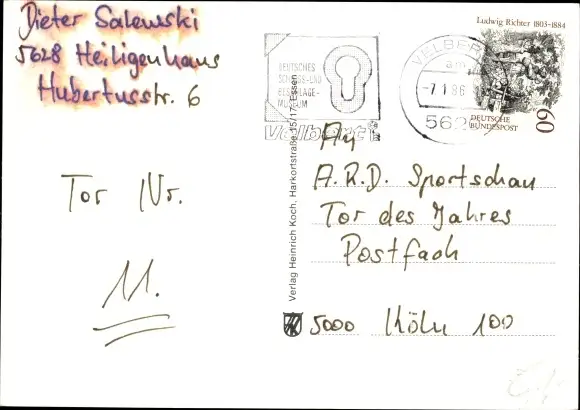 Dieter Salewski
5628 Heiligenhaus
Hubertusstr. 6
Tor Nr.
11.
Verlag Heinrich Koch, Harkortstraße 15/17, Essen
DEUTSCHES
SCHLOSS- UND
BESCHLÄGE-
MUSEUM
Velbert
VELBERT
-7.1.86
562
Ludwig Richter 1803-1884
DEUTSCHE
BUNDESPOST
60
An
A.R.D. Sportschau
Tor des Jahres
Postfach
5000 Köln 100